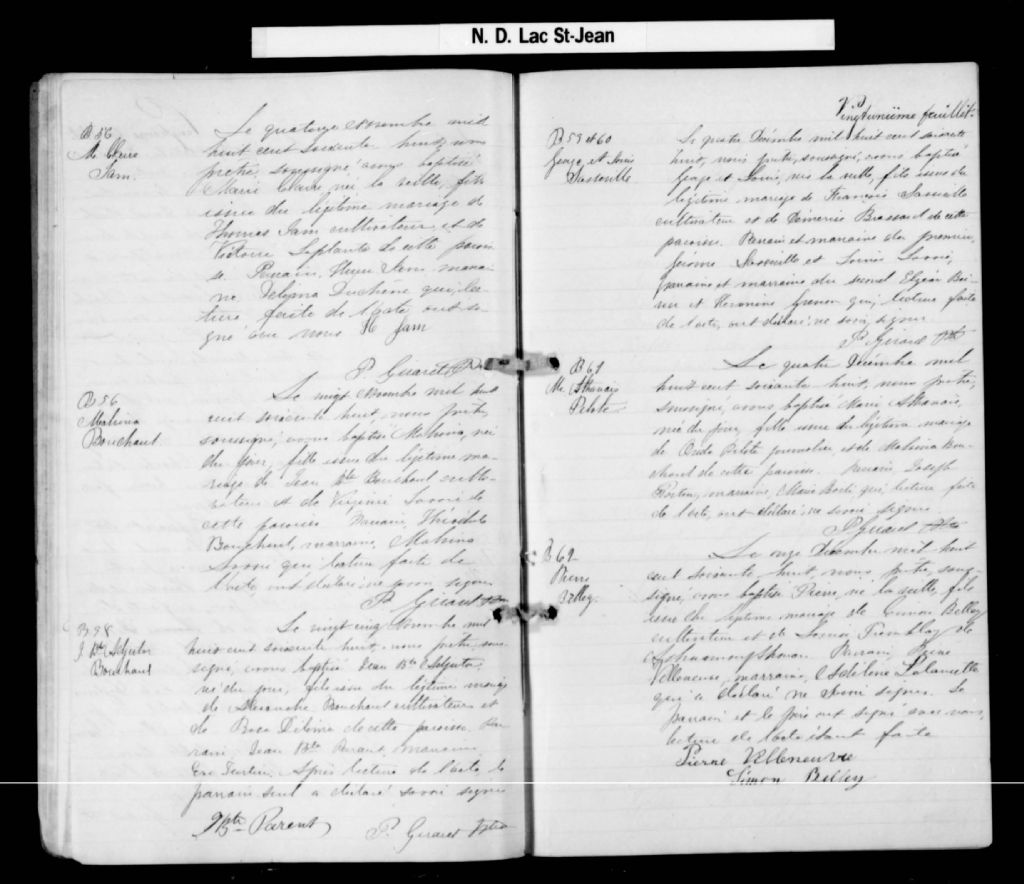 N. D. Lac St-Jean
B 56
M. Claire
Jam.
Le quatorze Novembre mil
huit cent soixante huit, nous
prêtre, soussigné, avons baptisé
Marie Claire, née la veille, fille
issue du légitime mariage de
Thomas Jam cultivateur, et de
Victoire Laplante de cette parois-
se. Parrain, Jam marrai-
ne Delima Duchêne qui, lec-
ture faite de l'acte, ont si-
gné avec nous. Jam
P. Girard Ptre
B 56
Malvina
Bouchard
Le vingt Novembre mil huit
cent soixante huit, nous prêtre,
soussigné, avons baptisé Malvina, née
du jour, fille issue du légitime ma-
riage de Jean Bte Bouchard culti-
vateur et de Virginie Savoi de
cette paroisse. Parrain, Théophile
Bouchard, marraine, Malvina
Savoi qui lecture faite de
l'acte ont déclaré ne savoir signer
P. Girard Ptre
B 58
J. Bte
Bouchard
Le vingt cinq Novembre mil
huit cent soixante huit, nous prêtre sous-
signé, avons baptisé Jean Bte
né du jour, fils issu du légitime mariage
de Alexandre Bouchard cultivateur et
de Rose Délima de cette paroisse. Par-
rain, Jean Bte Parent, marraine,
Fortin. Après lecture de l'acte le
parrain seul a déclaré savoir signer
JBte Parent P. Girard Ptre
Vingtunième feuillet.
B 59 et 60
George et Louis
Sasseville
Le quatre Décembre mil huit cent soixante
huit, nous prêtre, soussigné, avons baptisé
George et Louis, nés la veille, fils issus du
légitime mariage de François Sasseville
cultivateur et de Démerise Brassard de cette
paroisse. Parrain et marraine du premier,
Jérôme Sasseville et Louise Savoi,
parrain et marraine du second Elzéar Boi-
et Grenon qui, lecture faite
de l'acte, ont déclaré ne savoir signer.
P. Girard Ptre
B 61
Me Athanais
Pilote
Le quatre Décembre mil
huit cent soixante huit, nous prêtre,
soussigné, avons baptisé Marie Athanais,
née du jour, fille issue du légitime mariage
de Pilote journalier, et de Malvina Bou-
chard de cette paroisse. Parrain Joseph
Fortin, marraine, Marie qui lecture faite
de l'acte, ont déclaré ne savoir signer.
P. Girard Ptre
B 62
Pierre
Belley.
Le onze Décembre mil huit
cent soixante huit, nous prêtre, sous-
signé, avons baptisé Pierre, né la veille, fils
issu du légitime mariage de Simon Belley
cultivateur et de Louise Tremblay de
Parrain, Pierre
Villeneuve, marraine, Adéline Lalancette
qui a déclaré ne savoir signer. Le
parrain et le père ont signé avec nous,
lecture de l'acte étant faite
Pierre Villeneuve
Simon Belley